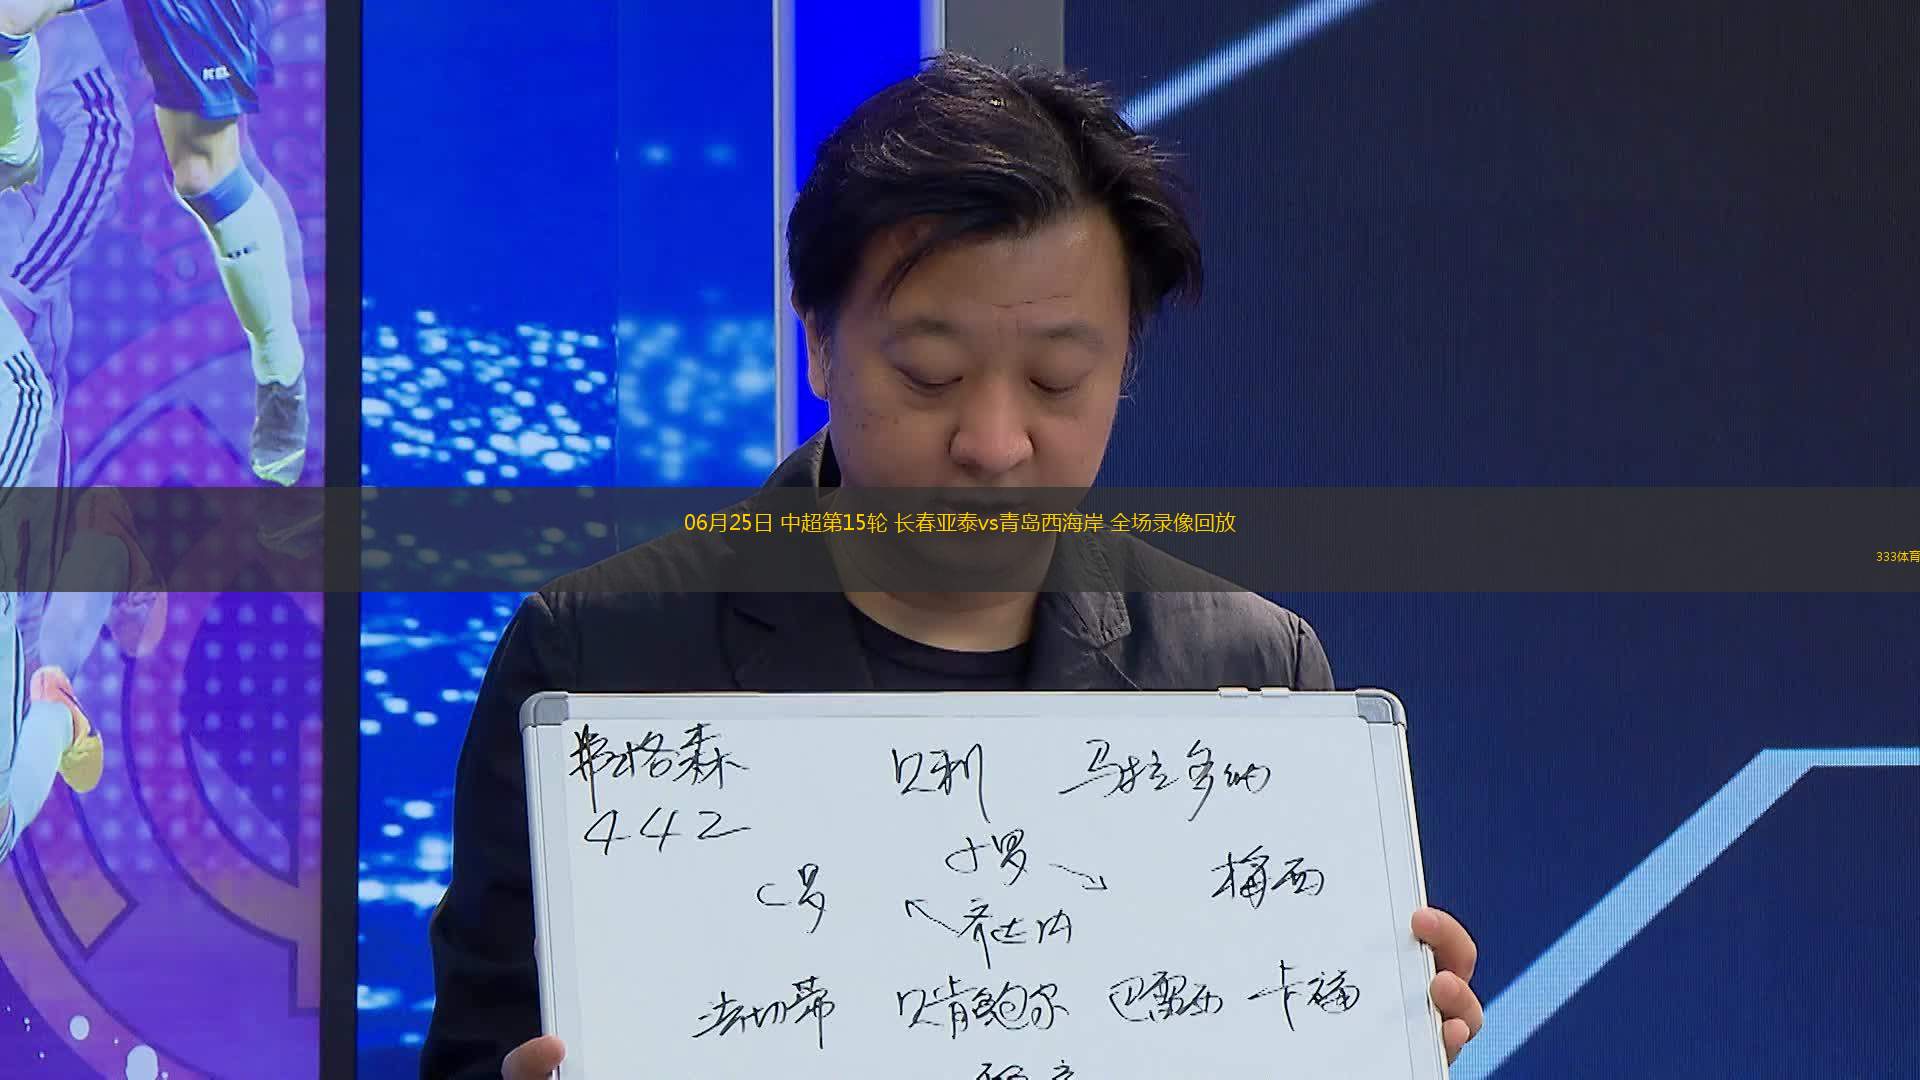 KEL
06月25日 中超第15轮 长春亚泰vs青岛西海岸 全场录像回放
333体育
弗格森 贝利 马拉多纳
442
小罗
C罗 梅西
齐达内
法切蒂 贝肯鲍尔 巴雷西 卡福